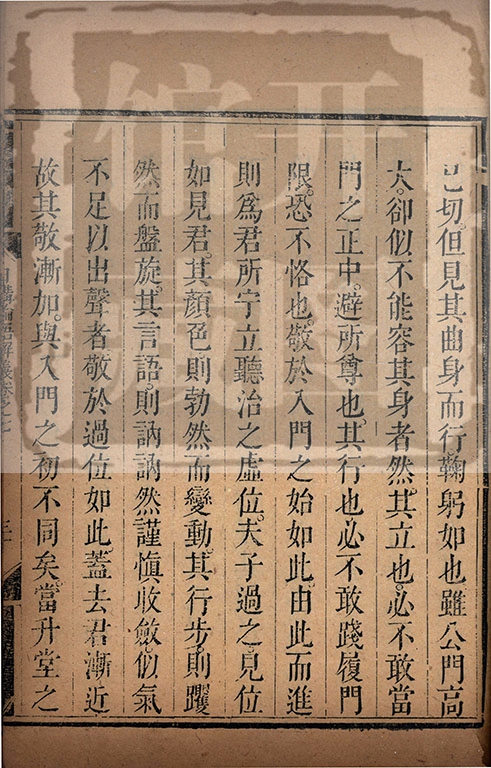 已切但見其曲身而行鞠躬如也雖公門高
大卻似不能容其身者然其立也必不敢當
門之正中避所尊也其行也必不敢踐履門
限恐不恪也敬於入門之始如此由此而進
則爲君所宁立聽治之虛位夫子過之見位
如見君其顏色則勃然而變動其行步則躩
然而盤旋其言語則訥訥然謹慎收斂似氣
不足以出聲者敬於過位如此蓋去君漸近
故其敬漸加與入門之初不同矣當升堂之
日講四書解義卷之七